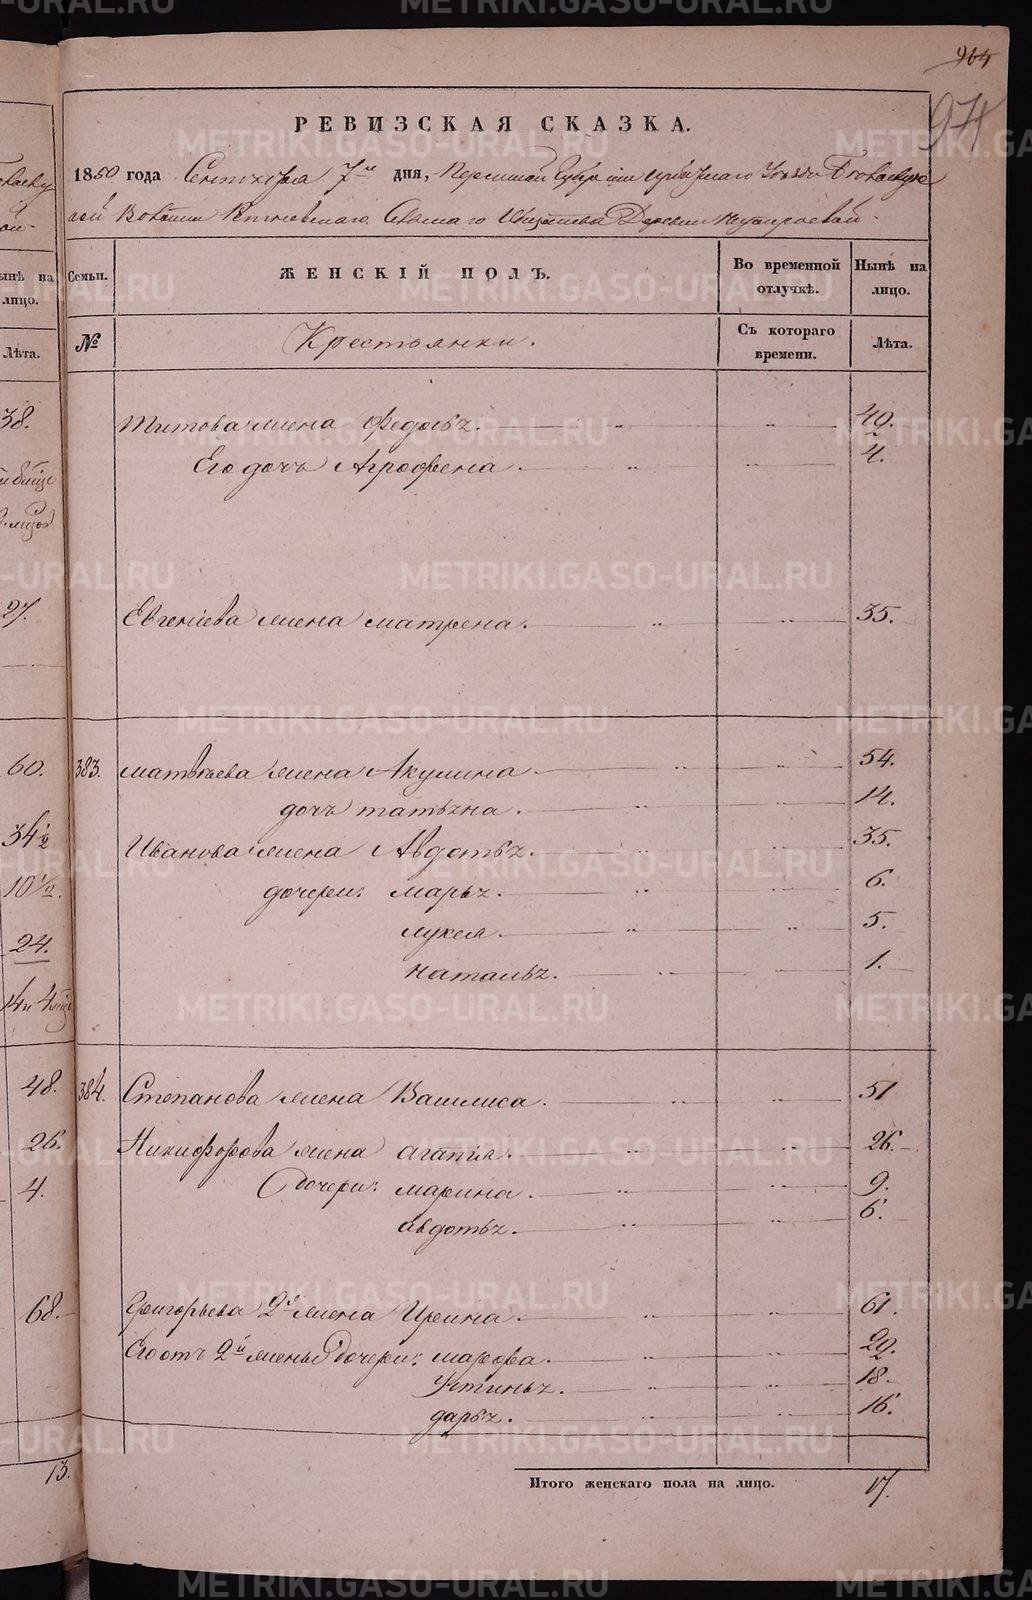 964
974
РЕВИЗСКАЯ СКАЗКА.
1850 года Сентября 7го дня, Пермской Губернии Ирбитскаго Уезда
Волости Сельскаго Деревни
Семьи.
ЖЕНСКІЙ ПОЛЪ.
Во временной отлучкѣ.
Нынѣ на лицо.
№
Крестьянки.
Съ котораго времени.
Лѣта.
ынѣ на лицо.
Лѣта.
38.
Титова жена Федосья. 49.
Его дочь Агрофена. 4.
27.
Евгеніева жена Матрена. 35.
60. 383. Матвѣева жена Акулина 54.
дочь Татьяна. 14.
34½
Иванова жена Авдотья. 35.
10½.
дочери: Марья. 6.
Лукея. 5.
24.
Наталья. 1.
48. 384. Степанова жена Василиса. 51
26. Никифорова жена Агапія. 26.
4. дочери: Марина. 9.
Авдотья. 6.
68. Григорьева 2я жена Ирина. 61.
Его отъ 2й жены дочери: Марфа. 29.
Устинья. 18.
Дарья. 16.
13.
Итого женскаго пола на лицо. 17.
METRIKI.GASO-URAL.RU